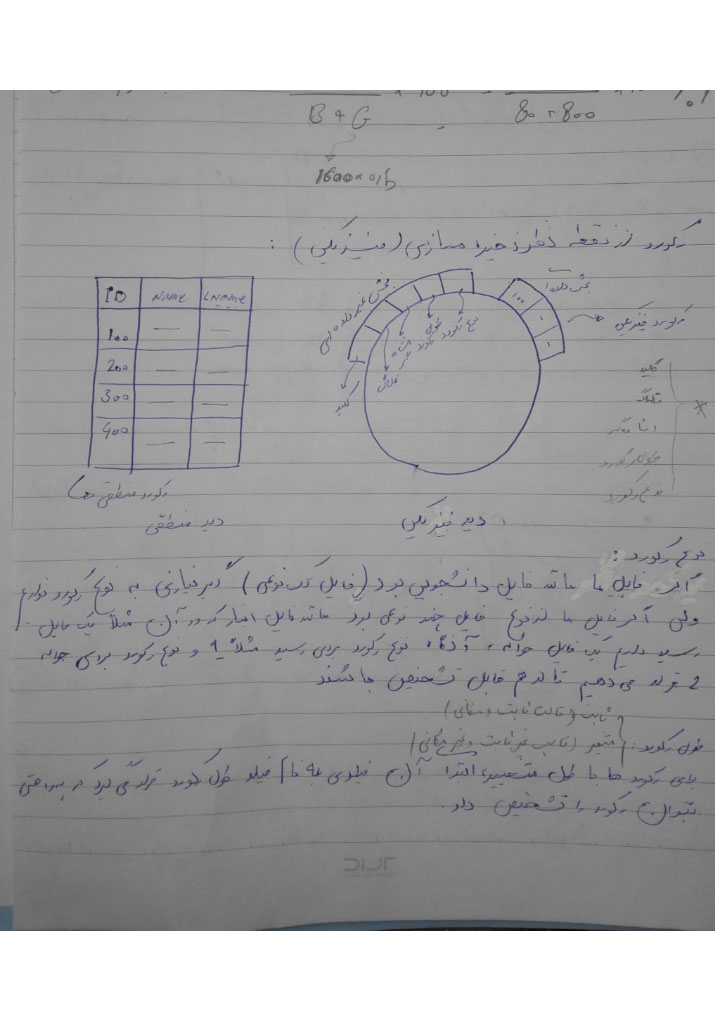 × 100
B + G
80 + 800
1600 × 0/b
رکورد از نقطه نظر ذخیره سازی (فیزیکی) :
ID Name LName
100
200
300
400
رکورد منطقی
دید منطقی
بخش غیر داده ای
بخش داده ای
100
نوع رکورد
طول رکورد
کلید
رکورد فیزیکی
دید فیزیکی
کلید
فلگ
اشاره گر
طول رکورد
نوع رکورد
نوع رکورد :
اگر فایل ما مانند فایل دانشجویی بود (فایل تک نوعی) دیگر نیازی به نوع رکورد نداریم
ولی اگر فایل ما از نوع فایل چند نوعی بود مانند فایل انبار که در آن مثلاً یک فایل
رسید داریم یک فایل حواله، آنگاه نوع رکورد برای رسید مثلاً 1 و نوع رکورد برای حواله
2 قرار می دهیم تا از هم قابل تشخیص باشند
ثابت (قالب ثابت مکانی)
طول رکورد : متغیر (قالب غیر ثابت مکانی)
برای رکورد ها با طول متغییر، ابتدا آن فیلدی به نام فیلد طول رکورد قرار می گیرد که به راحتی
بتوان رکورد را تشخیص داد.